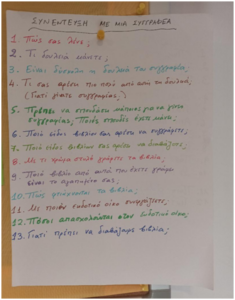 ΣΥΝΕΝΤΕΥΞΗ ΜΕ ΜΙΑ ΣΥΓΓΡΑΦΕΑ
1. Πώς σας λένε;
2. Τι δουλειά κάνετε;
3. Είναι δύσκολη η δουλειά του συγγραφέα;
4. Τι σας αρέσει πιο πολύ από αυτή τη δουλειά;
(Γιατί γίνατε συγγραφέας;)
5. Πρέπει να σπουδάσει κάποιος για να γίνει
συγγραφέας; Ποιες σπουδές έχετε κάνει;
6. Ποιο είδος βιβλίων σας αρέσει να συγγράφετε;
7. Ποιο είδος βιβλίων σας αρέσει να διαβάζετε;
8. Με τι χρώμα στυλό γράφετε τα βιβλία;
9. Ποιο βιβλίο από αυτά που έχετε γράψει
είναι το αγαπημένο σας;
10. Πώς φτιάχνονται τα βιβλία;
11. Με ποιον εκδοτικό οίκο συνεργάζεστε;
12. Πόσοι απασχολούνται στον εκδοτικό οίκο;
13. Γιατί πρέπει να διαβάζουμε βιβλία;